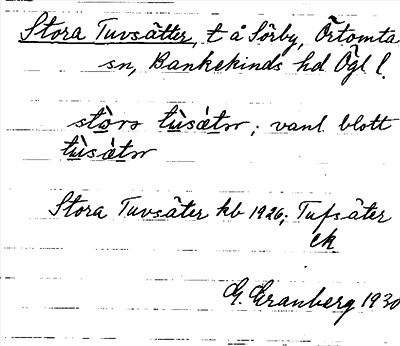 Stora Tuvsätter, t å Sörby, Örtomta
sn, Bankekinds hd Ögl l.
stòrɔ tùsǻtɔr; vanl. blott
tùsǻtɔr
Stora Tuvsäter kb 1926; Tufsäter
ek
G. Granberg 1930